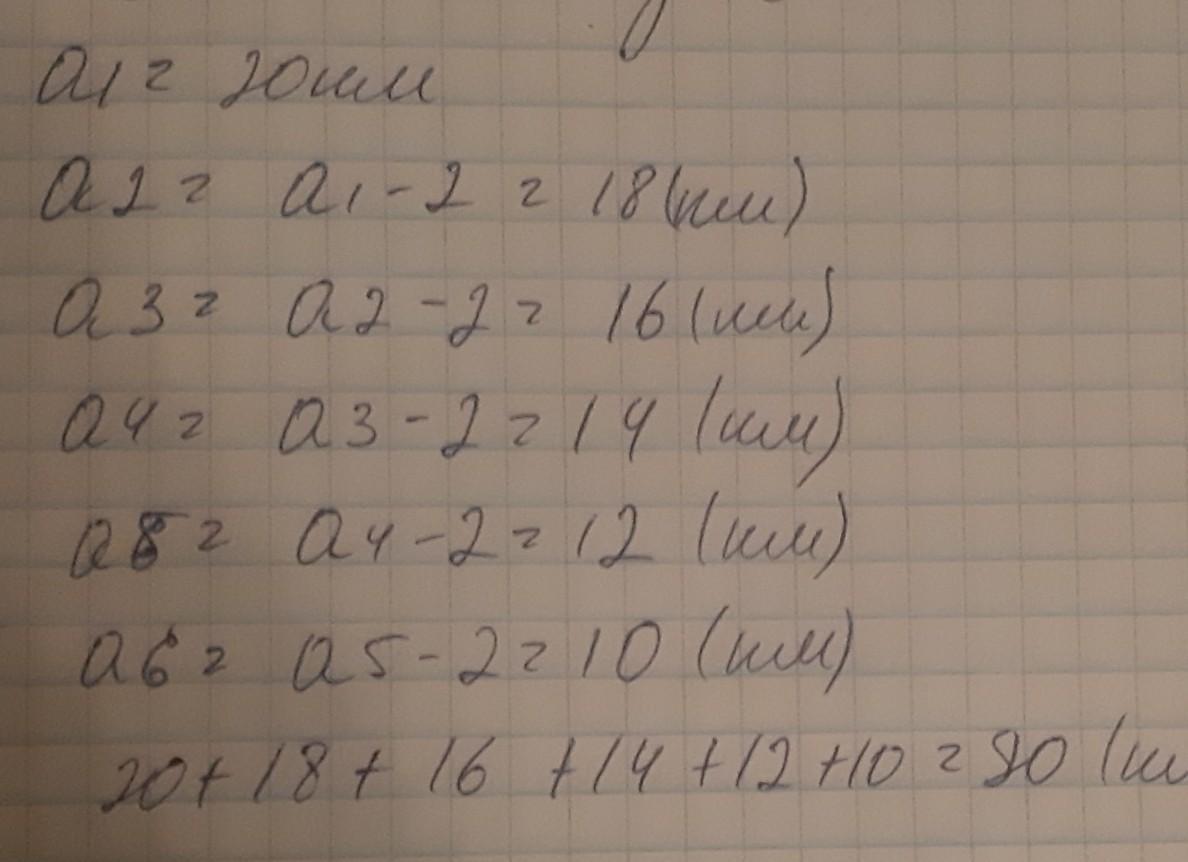 a1 = 20км
a2 = a1 - 2 = 18(км)
a3 = a2 - 2 = 16 (км)
a4 = a3 - 2 = 14 (км)
a5 = a4 - 2 = 12 (км)
a6 = a5 - 2 = 10 (км)
20 + 18 + 16 + 14 + 12 + 10 = 90 (км